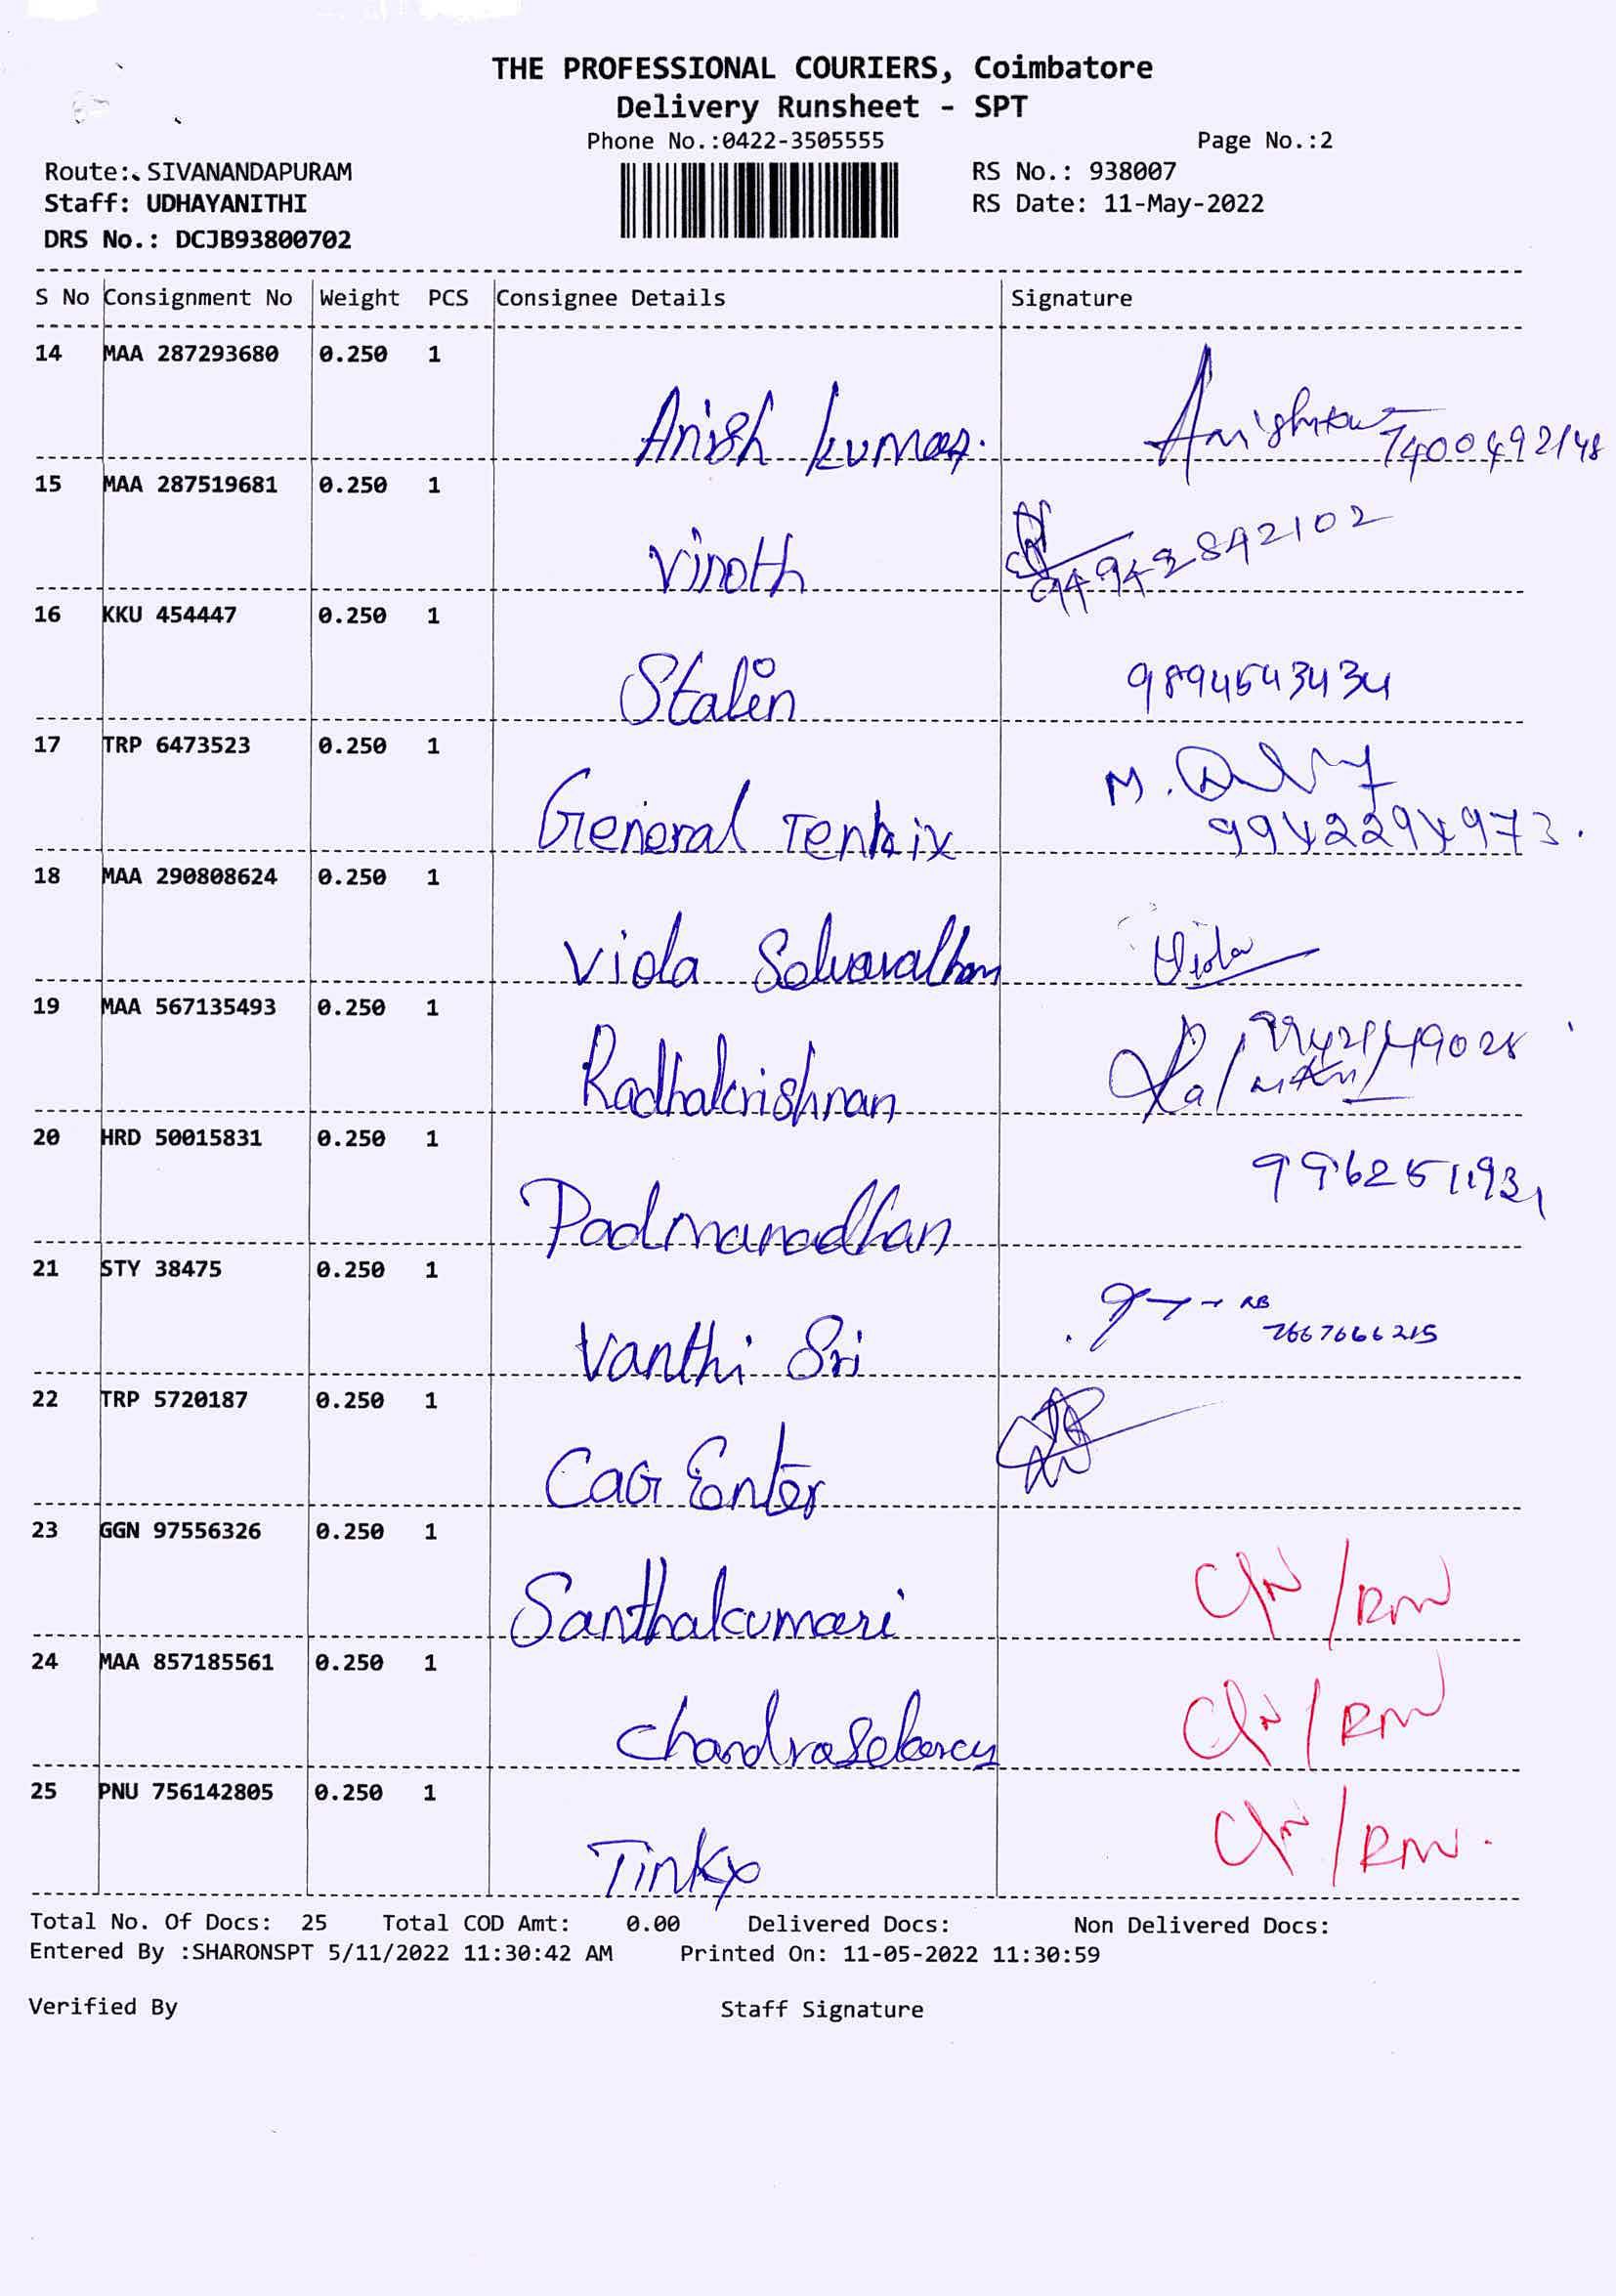 THE PROFESSIONAL COURIERS, Coimbatore
Delivery Runsheet - SPT
Phone No.:0422-3505555 Page No.:2
Route: SIVANANDAPURAM RS No.: 938007
Staff: UDHAYANITHI RS Date: 11-May-2022
DRS No.: DCJB93800702
S No Consignment No Weight PCS Consignee Details Signature
14 MAA 287293680 0.250 1
Anish kumar.
15 MAA 287519681 0.250 1
Vinoth
16 KKU 454447 0.250 1
Stalin 9894543434
17 TRP 6473523 0.250 1
M.
General 9942294973.
18 MAA 290808624 0.250 1
Viola Viola
19 MAA 567135493 0.250 1
Radhakrishnan
20 HRD 50015831 0.250 1
Padmanadhan
21 STY 38475 0.250 1
7667666215
Vanthi Sri
22 TRP 5720187 0.250 1
CaG Enter
23 GGN 97556326 0.250 1
Santhakumari
24 MAA 857185561 0.250 1
25 PNU 756142805 0.250 1
Tinky
Total No. Of Docs: 25 Total COD Amt: 0.00 Delivered Docs: Non Delivered Docs:
Entered By :SHARONSPT 5/11/2022 11:30:42 AM Printed On: 11-05-2022 11:30:59
Verified By Staff Signature